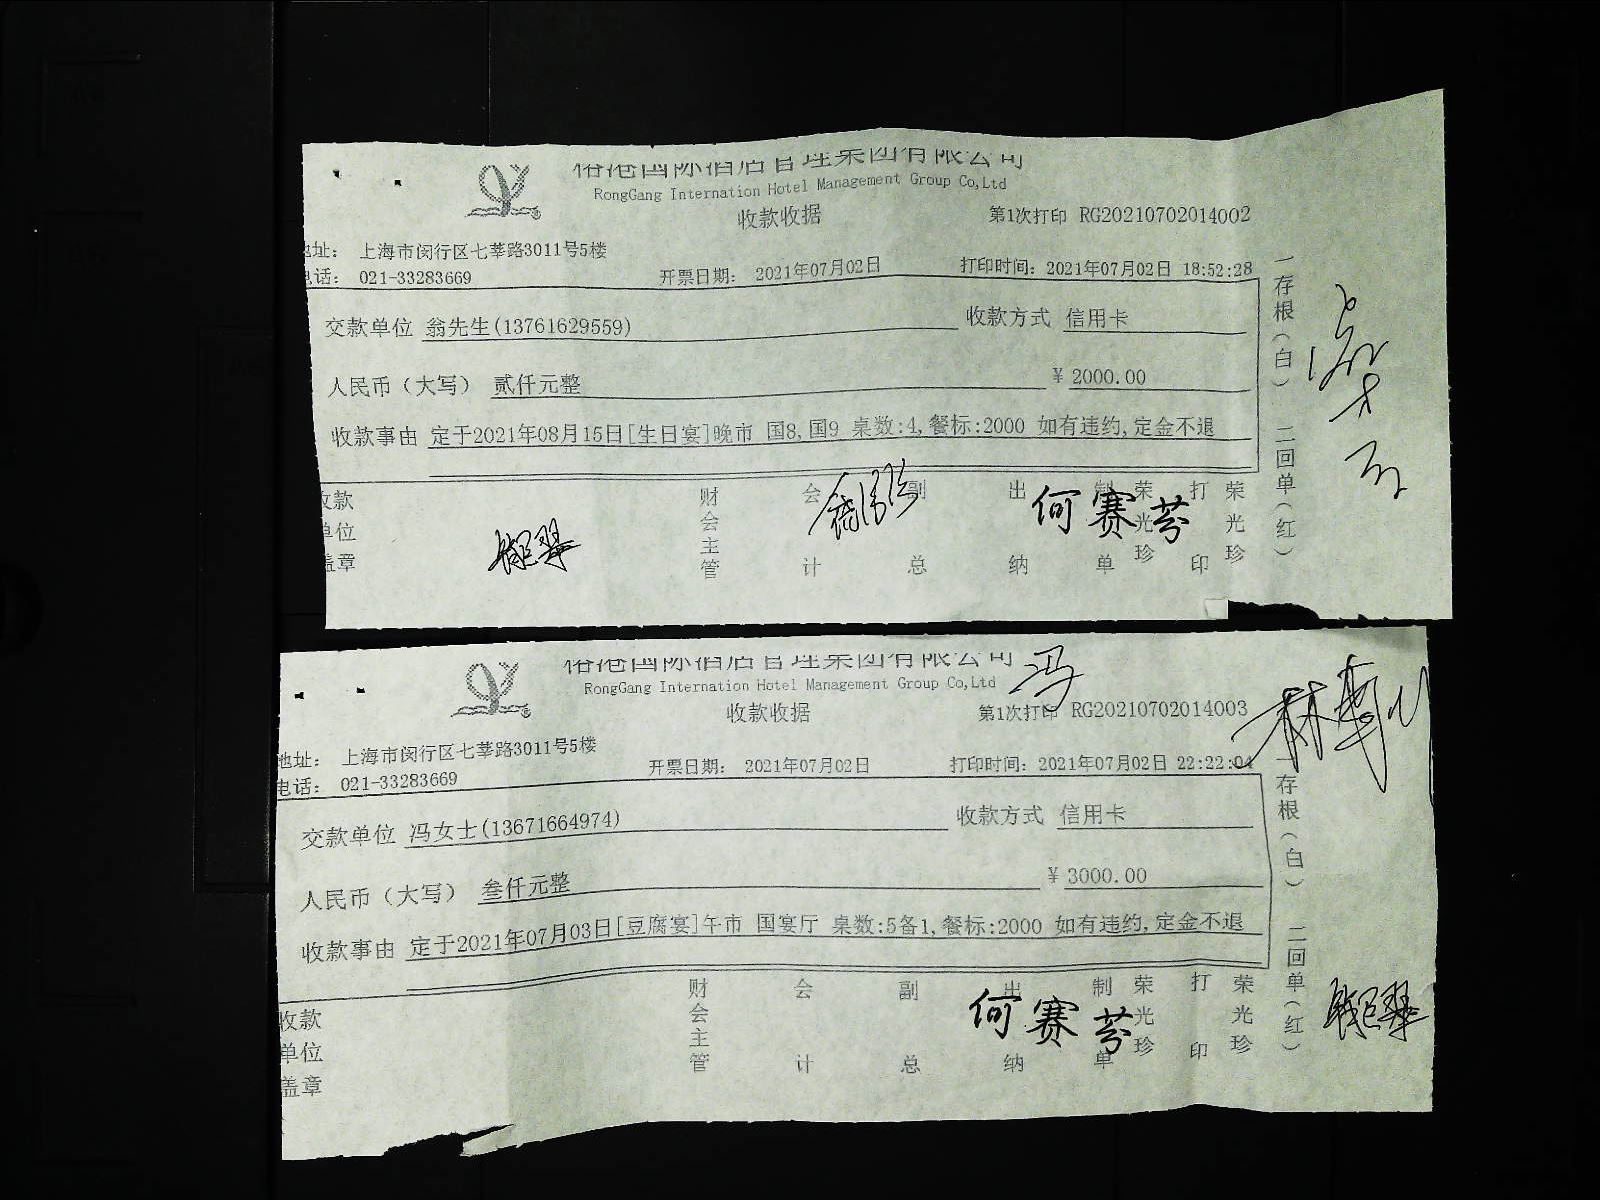 裕港国际酒店管理集团有限公司
RongGang Internation Hotel Management Group Co,Ltd
收款收据
第1次打印 RG20210702014002
地址： 上海市闵行区七莘路3011号5楼
电话： 021-33283669
开票日期： 2021年07月02日
打印时间：2021年07月02日 18:52:28
交款单位 翁先生(13761629559)
收款方式 信用卡
人民币（大写） 贰仟元整
¥ 2000.00
收款事由 定于2021年08月15日[生日宴]晚市 国8,国9 桌数:4,餐标:2000 如有违约,定金不退
收款单位盖章
财会主管
会计
副总
出纳
何赛芬
制单
荣光珍
打印
荣光珍
一存根（白） 二回单（红）
裕港国际酒店管理集团有限公司
冯
RongGang Internation Hotel Management Group Co,Ltd
收款收据
第1次打印 RG20210702014003
地址： 上海市闵行区七莘路3011号5楼
电话： 021-33283669
开票日期： 2021年07月02日
打印时间：2021年07月02日 22:22:04
交款单位 冯女士(13671664974)
收款方式 信用卡
人民币（大写） 叁仟元整
¥ 3000.00
收款事由 定于2021年07月03日[豆腐宴]午市 国宴厅 桌数:5备1,餐标:2000 如有违约,定金不退
收款单位盖章
财会主管
会计
副总
出纳
何赛芬
制单
荣光珍
打印
荣光珍
一存根（白） 二回单（红）